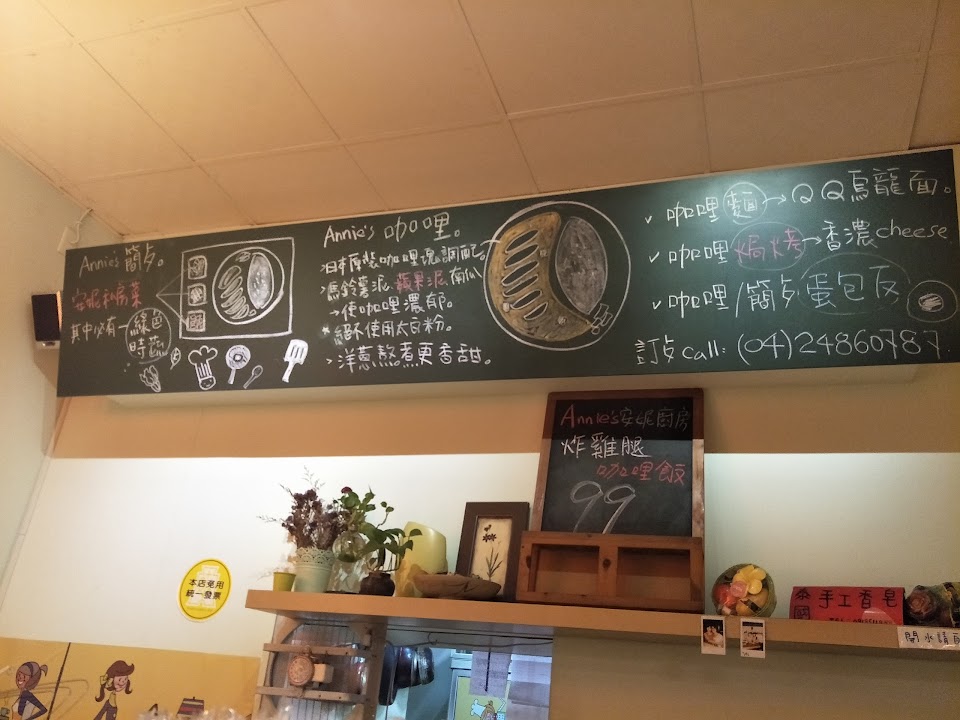 Annie's 簡歺。
安妮私房菜
其中必有一綠色
時蔬
Annie's 咖哩。
>日本原裝咖哩塊調配。
>馬鈴薯泥.蘋果泥.南瓜
→使咖哩濃郁。
*絕不使用太白粉。
>洋蔥熬煮更香甜。
✓咖哩麵→QQ烏龍面。
✓咖哩焗烤→香濃cheese
✓咖哩/簡歺蛋包反
訂歺 call: (04)24860787.
Annie's安妮廚房
炸雞腿
咖哩飯
99
本店免用
統一發票
泰國
手工香皂